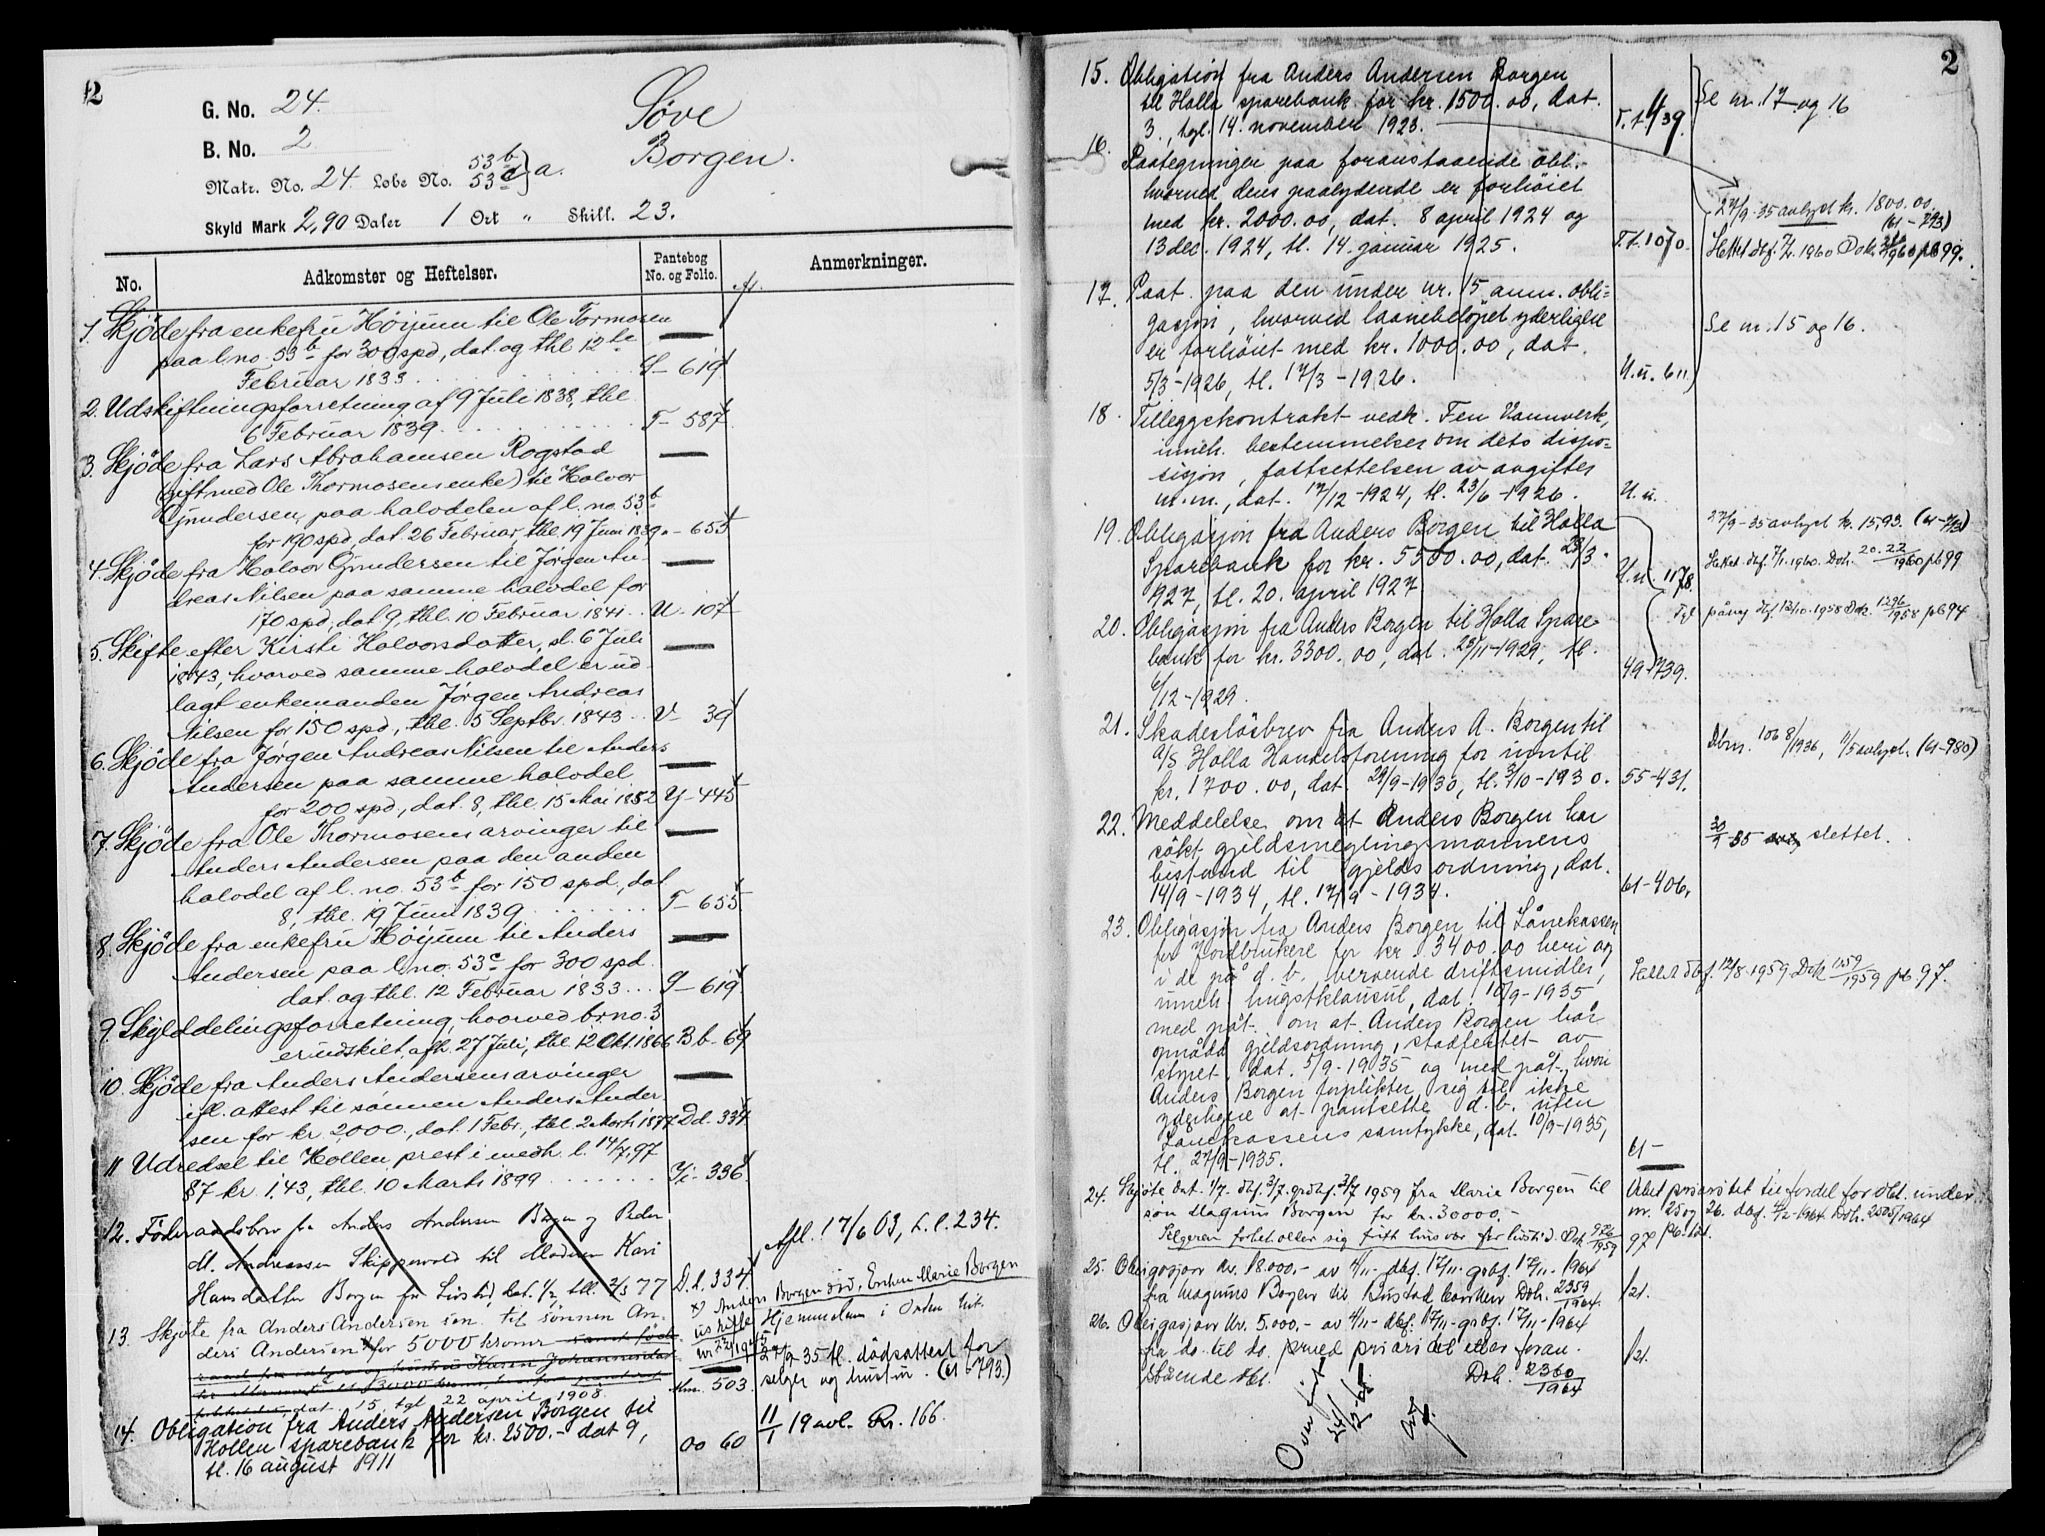 2
G. No. 24.
Søve
B. No. 2
Borgen.
Matr. No. 24. Løbe No. 53 b 53 c } a.
Skyld Mark 2,90 Daler 1 Ort " Skill. 23.
No. Adkomster og Heftelser. Pantebog No. og Folio. Anmerkninger.
1. Skjöde fra enkefru Höijum til Ole Tormosen
paa l. no. 53 b for 300 spd, dat. og thl 12te
Februar 1833 S - 619
2. Udskiftningsforretning af 9 Juli 1838, thl.
6 Februar 1839 T - 587
3. Skjöde fra Lars Abrahamsen Rogstad
(gift med Ole Thormosens enke) til Halvor
Gundersen, paa halvdelen af l. no. 53 b
for 190 spd, dat. 26 Februar, thl. 19 Juni 1839 " - 653
4. Skjöde fra Halvor Gundersen til Jörgen An-
dreas Nilsen paa samme halvdel for
170 spd, dat 9, thl. 10 Februar 1841 U - 107
5. Skifte efter Kirsti Halvorsdatter, sl. 6 Juli
1843, hvorved samme halvdel er ud-
lagt enkemanden Jörgen Andreas
Nilsen for 150 spd, thl. 5 Septbr. 1843 V - 39
6. Skjöde fra Jörgen Andreas Nilsen til Anders
Andersen paa samme halvdel
for 200 spd., dat. 8, thl 15 Mai 1852 Y - 445
7. Skjöde fra Ole Thormosens arvinger til
Anders Andersen paa den anden
halvdel af l. no. 53 b for 150 spd, dat
8, thl. 19 Juni 1839 T - 655
8. Skjöde fra enkefru Höijum til Anders
Andersen paa l. no. 53 c for 300 spd
dat. og thl. 12 Februar 1833 S - 619
9. Skylddelingsforretning, hvorved br. no. 3
er udskilt, afh. 27 Juli, thl. 12 Okt. 1866 B b - 69
10. Skjöde fra Anders Andersens arvinger
ifl. attest til sönnen Anders Ander-
sen for kr. 2000, dat. 1 Febr., thl. 2 Marts 1877 Dd. 334
11 Udredsel til Hollen prest i medh. l. 14/7 97
§7 kr. 1,43, thl. 10 Marts 1899 336
12. Föderaadsbrev fra Anders Andersen Borgen og Peder
M. Andreassen Skippervold til Moderen Kari
Hansdatter Borgen for Livstid, dat. 1/2, thl. 2/3 77 D. d. 334
Afl. 17/6 03, L. l. 234.
13 Skjöte fra Anders Andersen sen. til sönnen An-
ders Andersen for 5000 kroner
dat. 15, tgl 22 april 1908. 503
x) Anders Borgen död. Enken Marie Borgen
Hjemmelen i
27/9 35 tl. dödsattest for
selger og hustru. (61-793.)
14. Obligation fra Anders Andersen Borgen til
Hollen sparebank for kr. 2500.- dat 9,
tl. 16 august 1911 Oo 60
11/1 19 avl. Rr. 166.
2
15. Obligation fra Anders Andersen Borgen
til Holla sparebank for kr. 1500.00, dat.
3., tgl. 14. november 1923. T. t. 439.
Se nr. 17 og 16
16. Paategninger paa foranstaaende obl.-
hvorved dens paalydende er forhöiet
med kr. 2000.00, dat. 8 april 1924 og
13 dec. 1924, tl. 14. januar 1925. T. t. 1070.
27/9-35 avlyst kr. 1800.00.
(61-793)
17. Paat. paa den under nr. 15 anm. obli=
gasjon, hvorved laanebelöpet yderligere
er forhöiet med kr. 1000.00, dat.
5/3-1926, tl. 17/3-1926. U. u. 611
Se nr. 15 og 16.
18 Tilleggskontrakt vedk. Fen Vannverk,
inneh. bestemmelser om dets dispo=
sisjon, fastsettelsen av avgifter
m.m., dat. 17/12-1924, tl. 23/6-1926. U. u.
19. Obligasjon fra Anders Borgen til Holla
Sparebank for kr. 5500.00, dat. 23/3.
1927, tl. 20. april 1927 U. u. 1178.
27/9-35 avlyst kr. 15,93. (61-793)
20. Obligasjon fra Anders Borgen til Holla Spare-
bank for kr. 3300.00, dat. 23/11-1929, tl.
6/12-1929. 49-739.
21. Skadeslösbrev fra Anders A. Borgen til
A/S Holla Handelsforening for inntil
kr. 1700.00, dat. 29/9-1930, tl. 3/10-1930. 55-431.
Dbnr. 1068/1936, 11/5 avlyst. (61-980)
22. Meddelelse om at Anders Borgen har
sökt gjeldsmeglingsmannens
bistand til gjeldsordning, dat.
14/9-1934, tl. 17/9-1934. 61-406.
slettet.
23. Obligasjon fra Anders Borgen til Lånekassen
for Jordbrukere for kr. 3400.00 heri og
i de på d. b. værende driftsmidler,
inneh. tingstklausul, dat. 10/9-1935
med påt. om at Anders Borgen har
opnådd gjeldsordning, stadfestet av
styret, dat. 5/9-1935 og med påt., hvori
Anders Borgen forplikter sig til ikke
yderligere at pantsette d. b. uten
Lånekassens samtykke, dat. 10/9-1935,
tl. 27/9-1935. 61 -
24. Skjöte dat. 1/7. dbf. 3/7. grdbf. 3/7 1959 fra Marie Borgen til
sön Magnus Borgen for kr. 30000.-
Selgeren forbeholder sig fritt husvær for livstid. Dok. 926/1959 97
Veket prioritet til fordel for obl. under
nr. 25 og 26.
25. Obligasjon kr. 18.000.- av 4/11- dbf. 17/11- grbf. 17/11- 1964
fra Magnus Borgen til Bustad banken Dok. 2359/1964. 121.
26. Obligasjon kr. 5.000,- av 4/11- dbf. 17/11- grbf. 17/11- 1964
fra do. til do. med prioritet etter foran-
stående obl. Dok. 2360/1964 121.
Overfört